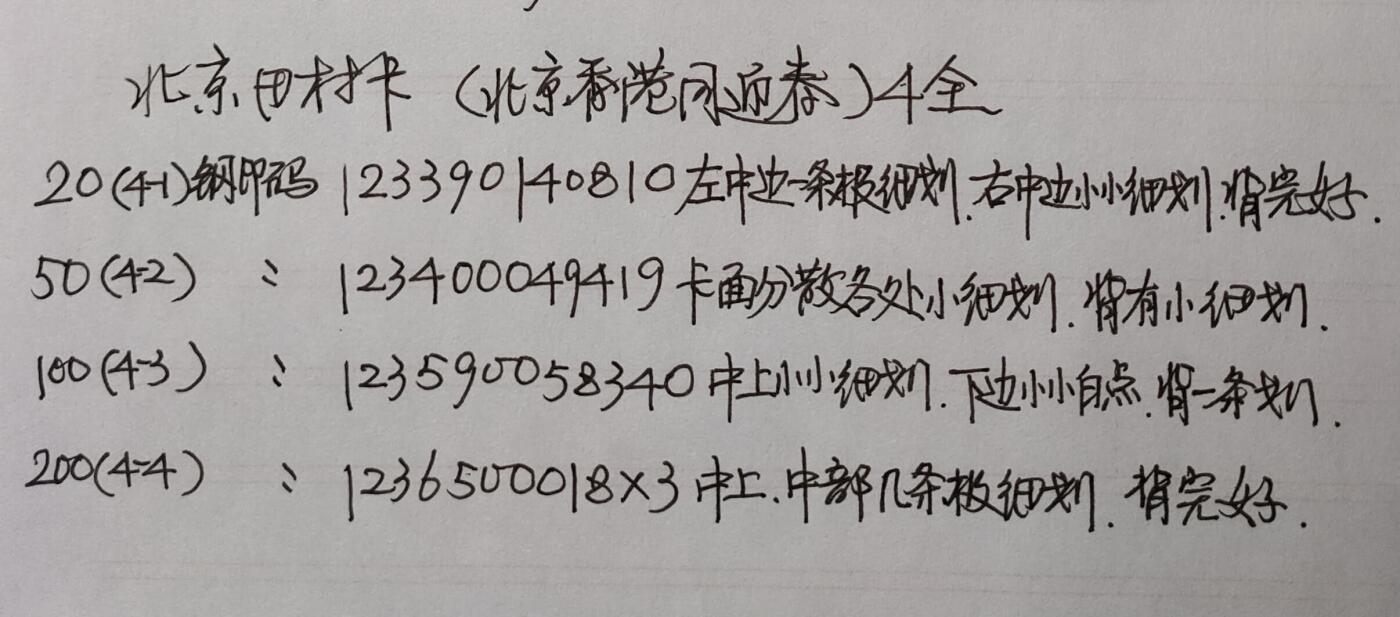 北京田村卡（北京香港同迎春）4全
20(4-1)钢印码 123390140810左中边一条极细划.右中边小小细划.背完好.
50(4-2) 〃 123400049419卡面分散各处小细划.背有小细划.
100(4-3) 〃 123590058340中上小小细划.下边小小白点.背一条划.
200(4-4) 〃 1236500018×3中上.中部几条极细划.背完好.